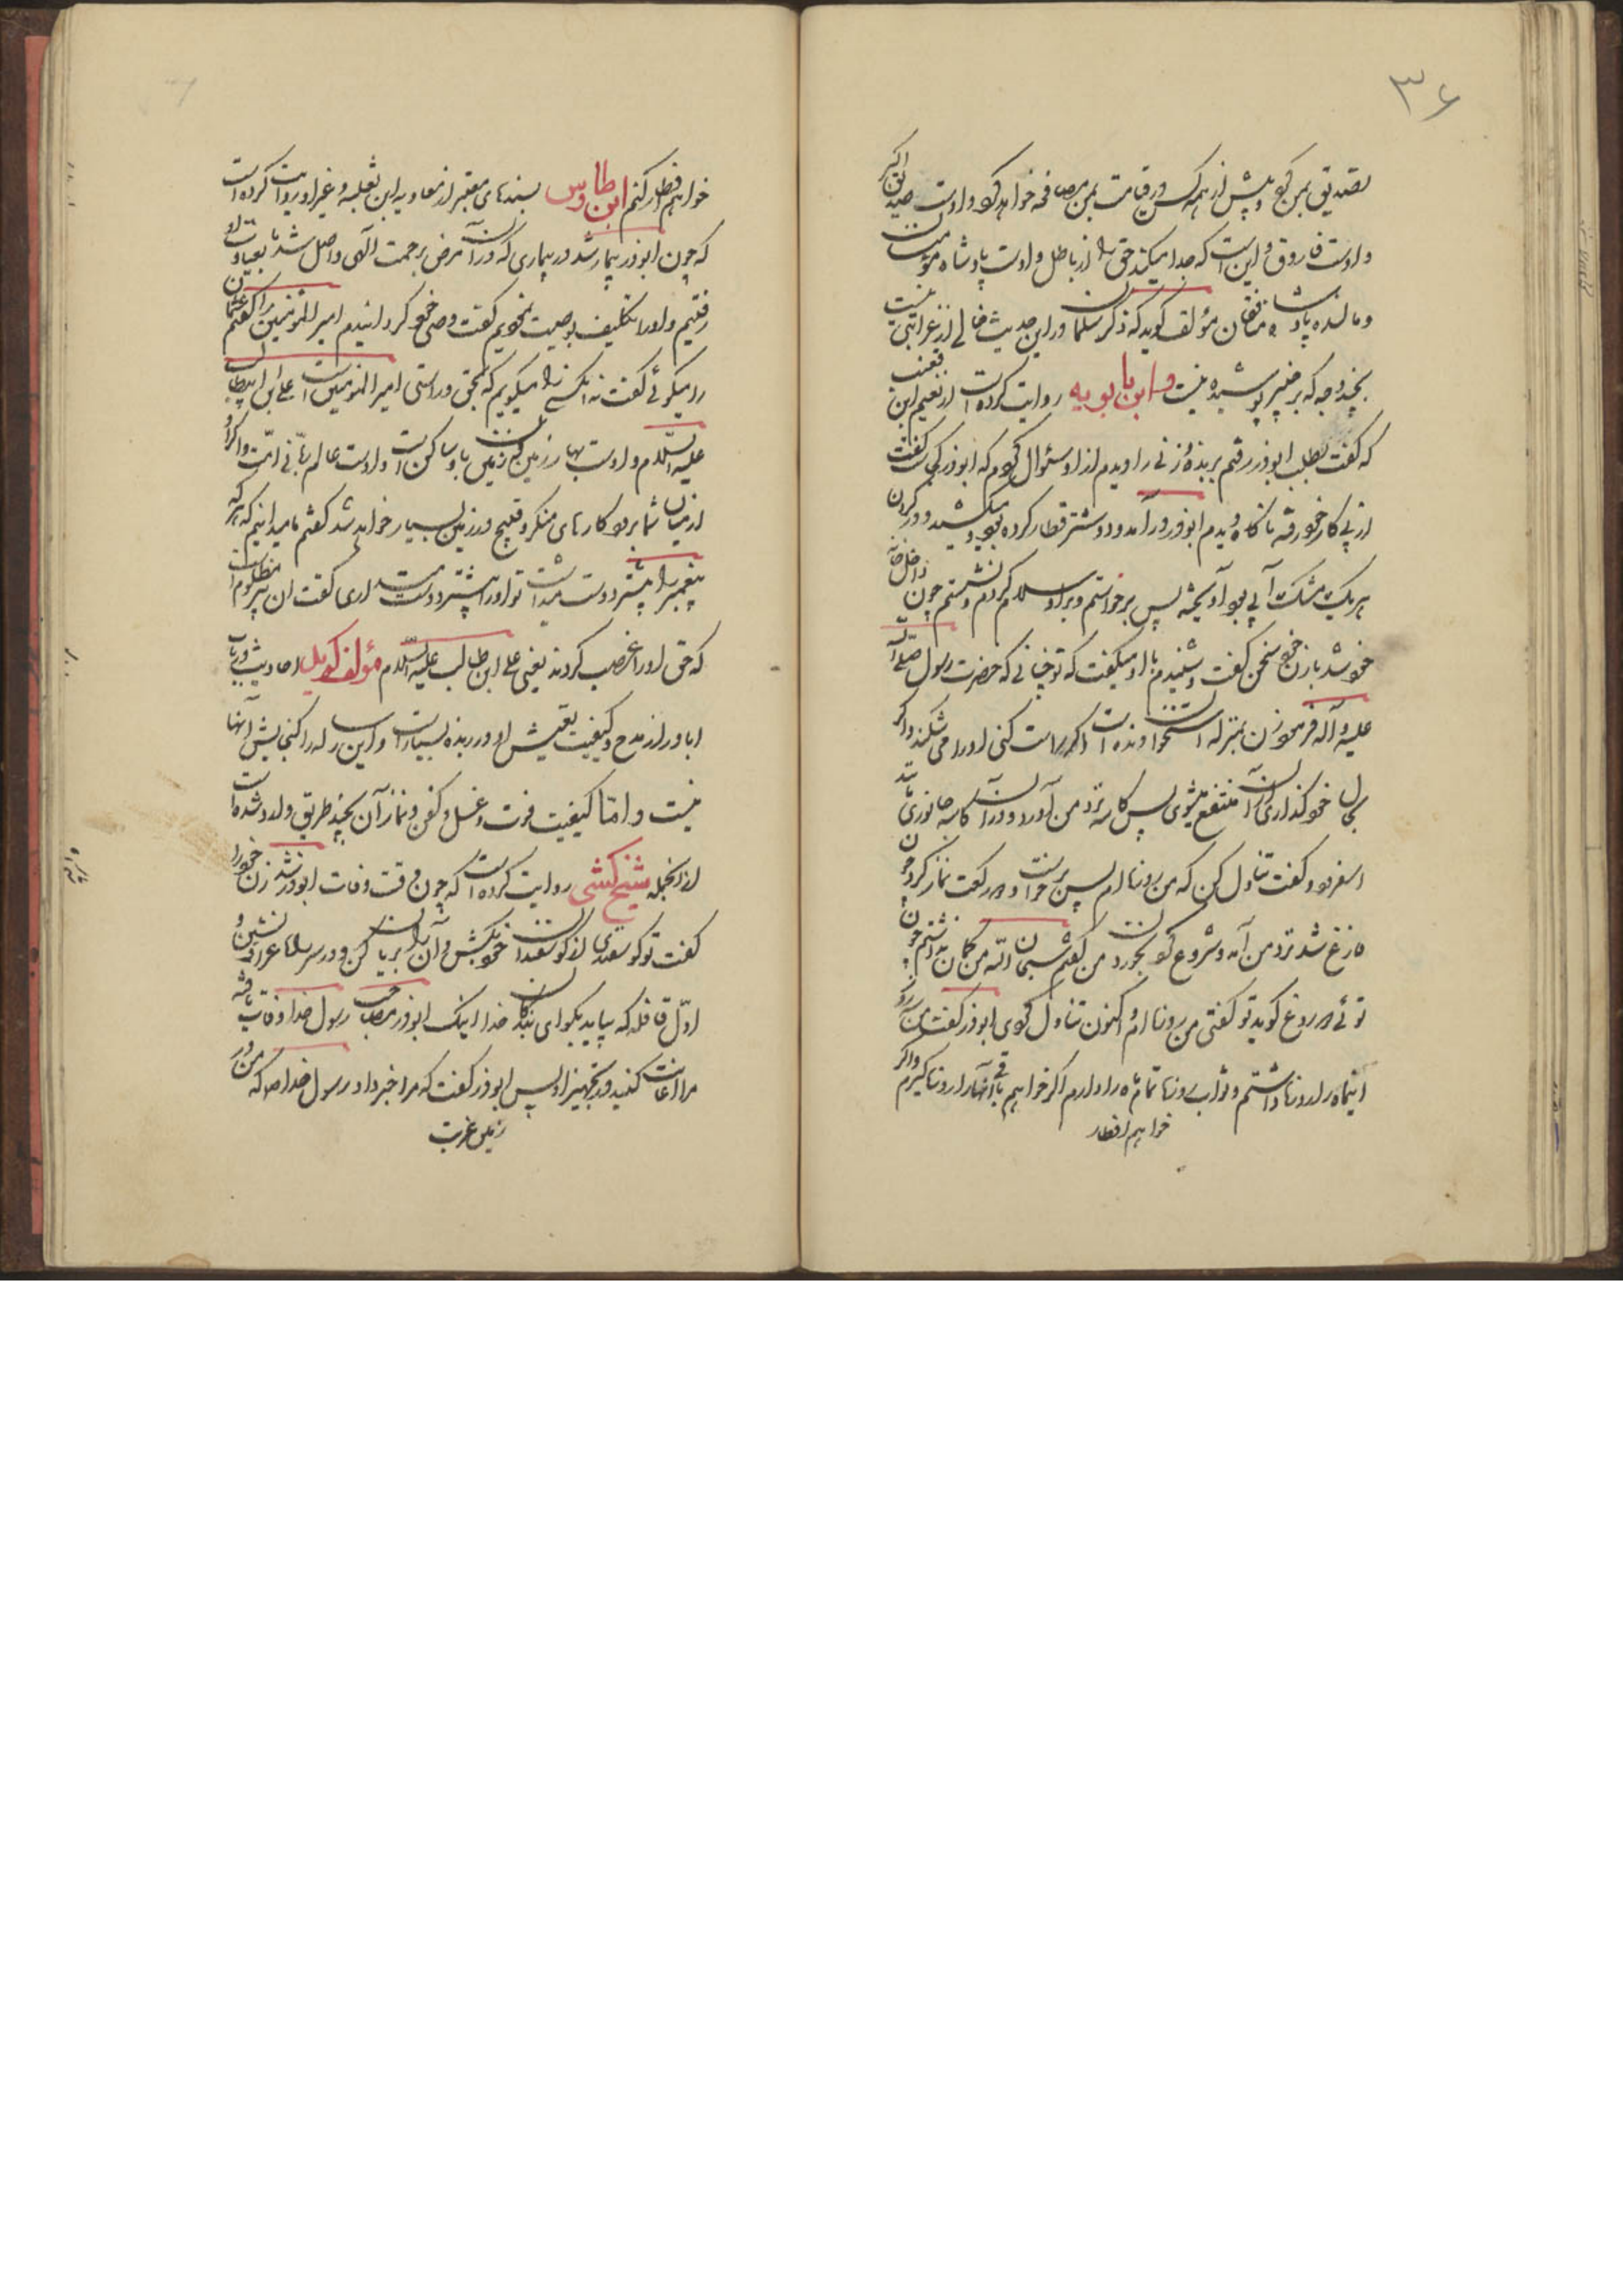 ۳۶
تصدیق بمن کرد و پیش از همه کس در قیامت بمن مصافحه خواهد کرد و اوست صدیق اکبر
و اوست فاروق این امت که جدا میکند حق را از باطل و اوست پادشاه مؤمنان
و مال پادشاه منافقان مؤلف گوید که ذکر سلمان در این حدیث خالی از غرابتی نیست
بچند وجه که بر خبیر پوشیده نیست و ابن بابویه روایت کرده است از نعیم ابن قعنب
که گفت بطلب ابوذر رفتم بربذه زنی را دیدم از او سئوال کردم که ابوذر کجاست گفت
از پی کار خود رفته ناگاه دیدم ابوذر در آمد و دو شتر قطار کرده بود و میکشید و در گردن
هر یک مشک آبی بود آویخته پس برخواستم و بر او سلام کردم و نشستم چون داخل خانه
خود شد با زن خود سخن گفت و شنیدم با او میگفت که تو چنانی که حضرت رسول صلی الله
علیه و آله فرموده زن بمنزله استخوان دنده است اگر راست کنی او را می شکند و اگر
بحال خود گذاری از آن منتفع میشوی پس کاسه نزد من آورد و در آن کاسه جانوری مانند
اسفرود و گفت تناول کن که من روزه ام پس برخواست و دو رکعت نماز کرد چون
فارغ شد نزد من آمد و شروع کرد بخوردن من گفتم سبحان الله من گمان نداشتم چون
توئی دروغ گوید تو گفتی من روزه ام و اکنون تناول کردی ابوذر گفت من سه روز
اینماه را روزه داشتم و ثواب روزه تمام ماه را دارم اگر خواهم باقی آنها را روزه گیرم و اگر
خواهم افطار
خواهم افطار کنم ابن طاوس بسندهای معتبر از معاویه ابن ثعلبه و غیر او روایت کرده است
که چون ابوذر بیمار شد در بیماری که در آن مرض برحمت الهی واصل شد ما بعیادت او
رفتیم و او را تکلیف بوصیت نمودیم گفت وصی خود گردانیدم امیر المؤمنین را گفتم عثمان
را میگوئی گفت نه آنکس را میگویم که بحق و راستی امیر المؤمنین است علی ابن ابیطالب
علیه السلام و اوست بهار زمین که زمین باو ساکن است و اوست عالم ربانی امت و اگر او
از میان شما برود کارهای منکر و قبیح در زمین بسیار خواهد شد گفتم ما میدانیم که هر که
پیغمبر را بیشتر دوست میداشت تو او را بیشتر دوست میداری گفت آن پیر مظلوم است
که حق او را غصب کردند یعنی علی ابن طالب علیه السلام مؤلف گوید احادیث در باب
اباذر از مدح و کیفیت تعیش او در ربذه بسیار است و این رساله را گنجایش آنها
نیست و اما کیفیت فوت و غسل و کفن و نماز آن بچند طریق وارد شده است
از انجمله شیخ کشی روایت کرده است که چون وقت وفات ابوذر شد زن خود را
گفت تو گوسفندی از گوسفندان خود بکش و آن را بریان کن و در سر راه عراق بنشین و
اول قافله که بیاید بگو ای بندگان خدا اینک ابوذر مصاحب رسول خدا وفات یافته
مرا اعانت کنید در تجهیز او پس ابوذر گفت که مرا خبر داد رسول خدا ص که من در
زمین غربت